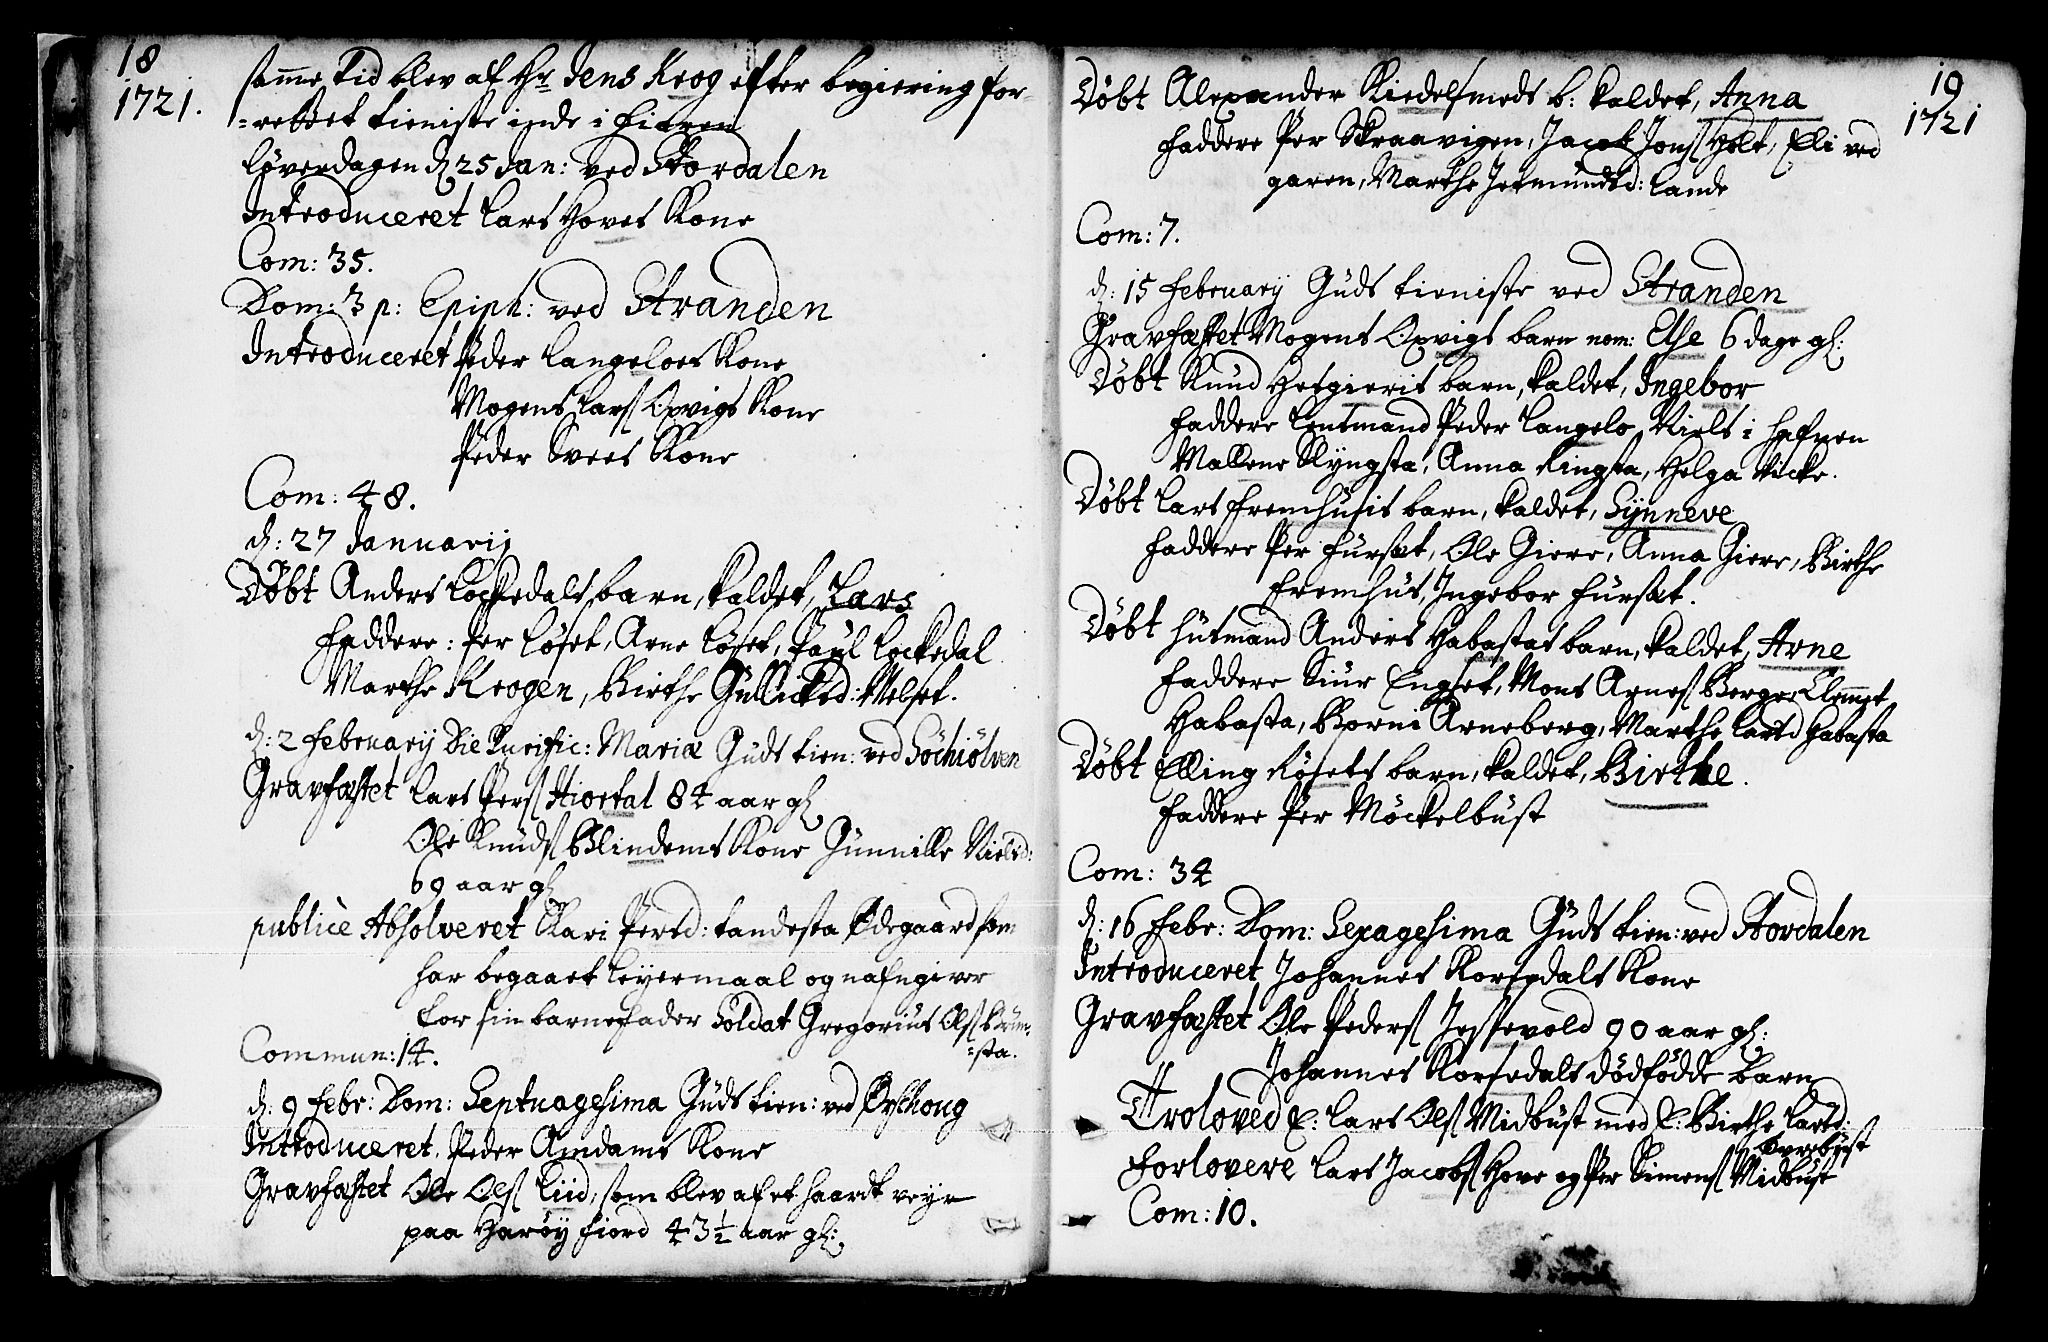 18
1721.
samme tid blev af Hr Jens Krog efter begiering for-
=rettet tieniste inde i
Løverdagen d 25 Jan: ved Stordalen
Introduceret Lars Hoves Kone
Com: 35.
Dom: 3 p: Epiph: ved Stranden
Introduceret Peder Langeloes Kone
Mogens Lars Opvigs Kone
Peder Svees Kone
Com: 48.
d: 27 Januarij
Døbt Anders Lockedals barn, kaldet, Lars
Faddere: Per Løset, Arne Løset, Paul Lockedal
Marthe Krogen, Birthe Gullicksd: Melset.
d: 2 February Die Purific: Mariæ Guds tien: ved Söchiölven
Gravfæstet Lars Pers Hiortal 84 aar gl
Ole Knuds Blindems Kone Gunnille Nielsd:
69 aar gl
publicè Absolveret Kari Persd: tandesta Ødegaard som
har begaaet Leyermaal og nafngiver
for sin barnefader Soldat Gregorius Ols Brun=
=sta.
Commun: 14.
d: 9 Febr: Dom: Septuagesima Guds tien: ved Ørschoug
Introduceret. Peder Amdams Kone
Gravfæstet Ole Ols Liid, som blev af et haardt veyr
paa Harøy fiord 43½ aar gl:
19
1721
Døbt Alexander Kiedelsmeds b: kaldet, Anna
Faddere Per Skraavigen, Jacob Jons Holt, Elli ved
garen, Marthe Jetmundsd: Lande
Com: 7.
d: 15 February Guds tieniste ved Stranden
Gravfæstet Mogens Opvigs barn nom: Else 6 dage gl:
Døbt Knud Helgieriis barn, kaldet, Ingebor
Faddere Lentmand Peder Langelo, Niels i Hafnen
Mallene Slyngsta, Anna Ringsta, Helga Vicke.
Døbt Lars Fremhusis barn, kaldet, Synneve
Faddere Per Fursæt, Ole Giere, Anna Giere, Birthe
Fremhus, Ingebor Fursæt.
Døbt Husmand Anders Habastas barn, kaldet, Arne
Faddere Siur Engset, Mons Arnes Berge, Clemet
Habasta, Borni Arneberg, Marthe Larsd Habasta
Døbt Elling Røsets barn, kaldet, Birthe.
Faddere Per Möckelbust
Com: 34
d: 16 Febr: Dom: Sexagesima Guds tien: ved Stordalen
Introduceret Johannes Korsedals Kone
Gravfæstet Ole Peders Jestevold 90 aar gl:
Johannes Korsedals dödfödde barn
Troloved E: Lars Ols Midbust med E: Birthe Larsd:
Övrebust
Forlovere Lars Jacobs Hove og Per Simens Midbust
Com: 10.